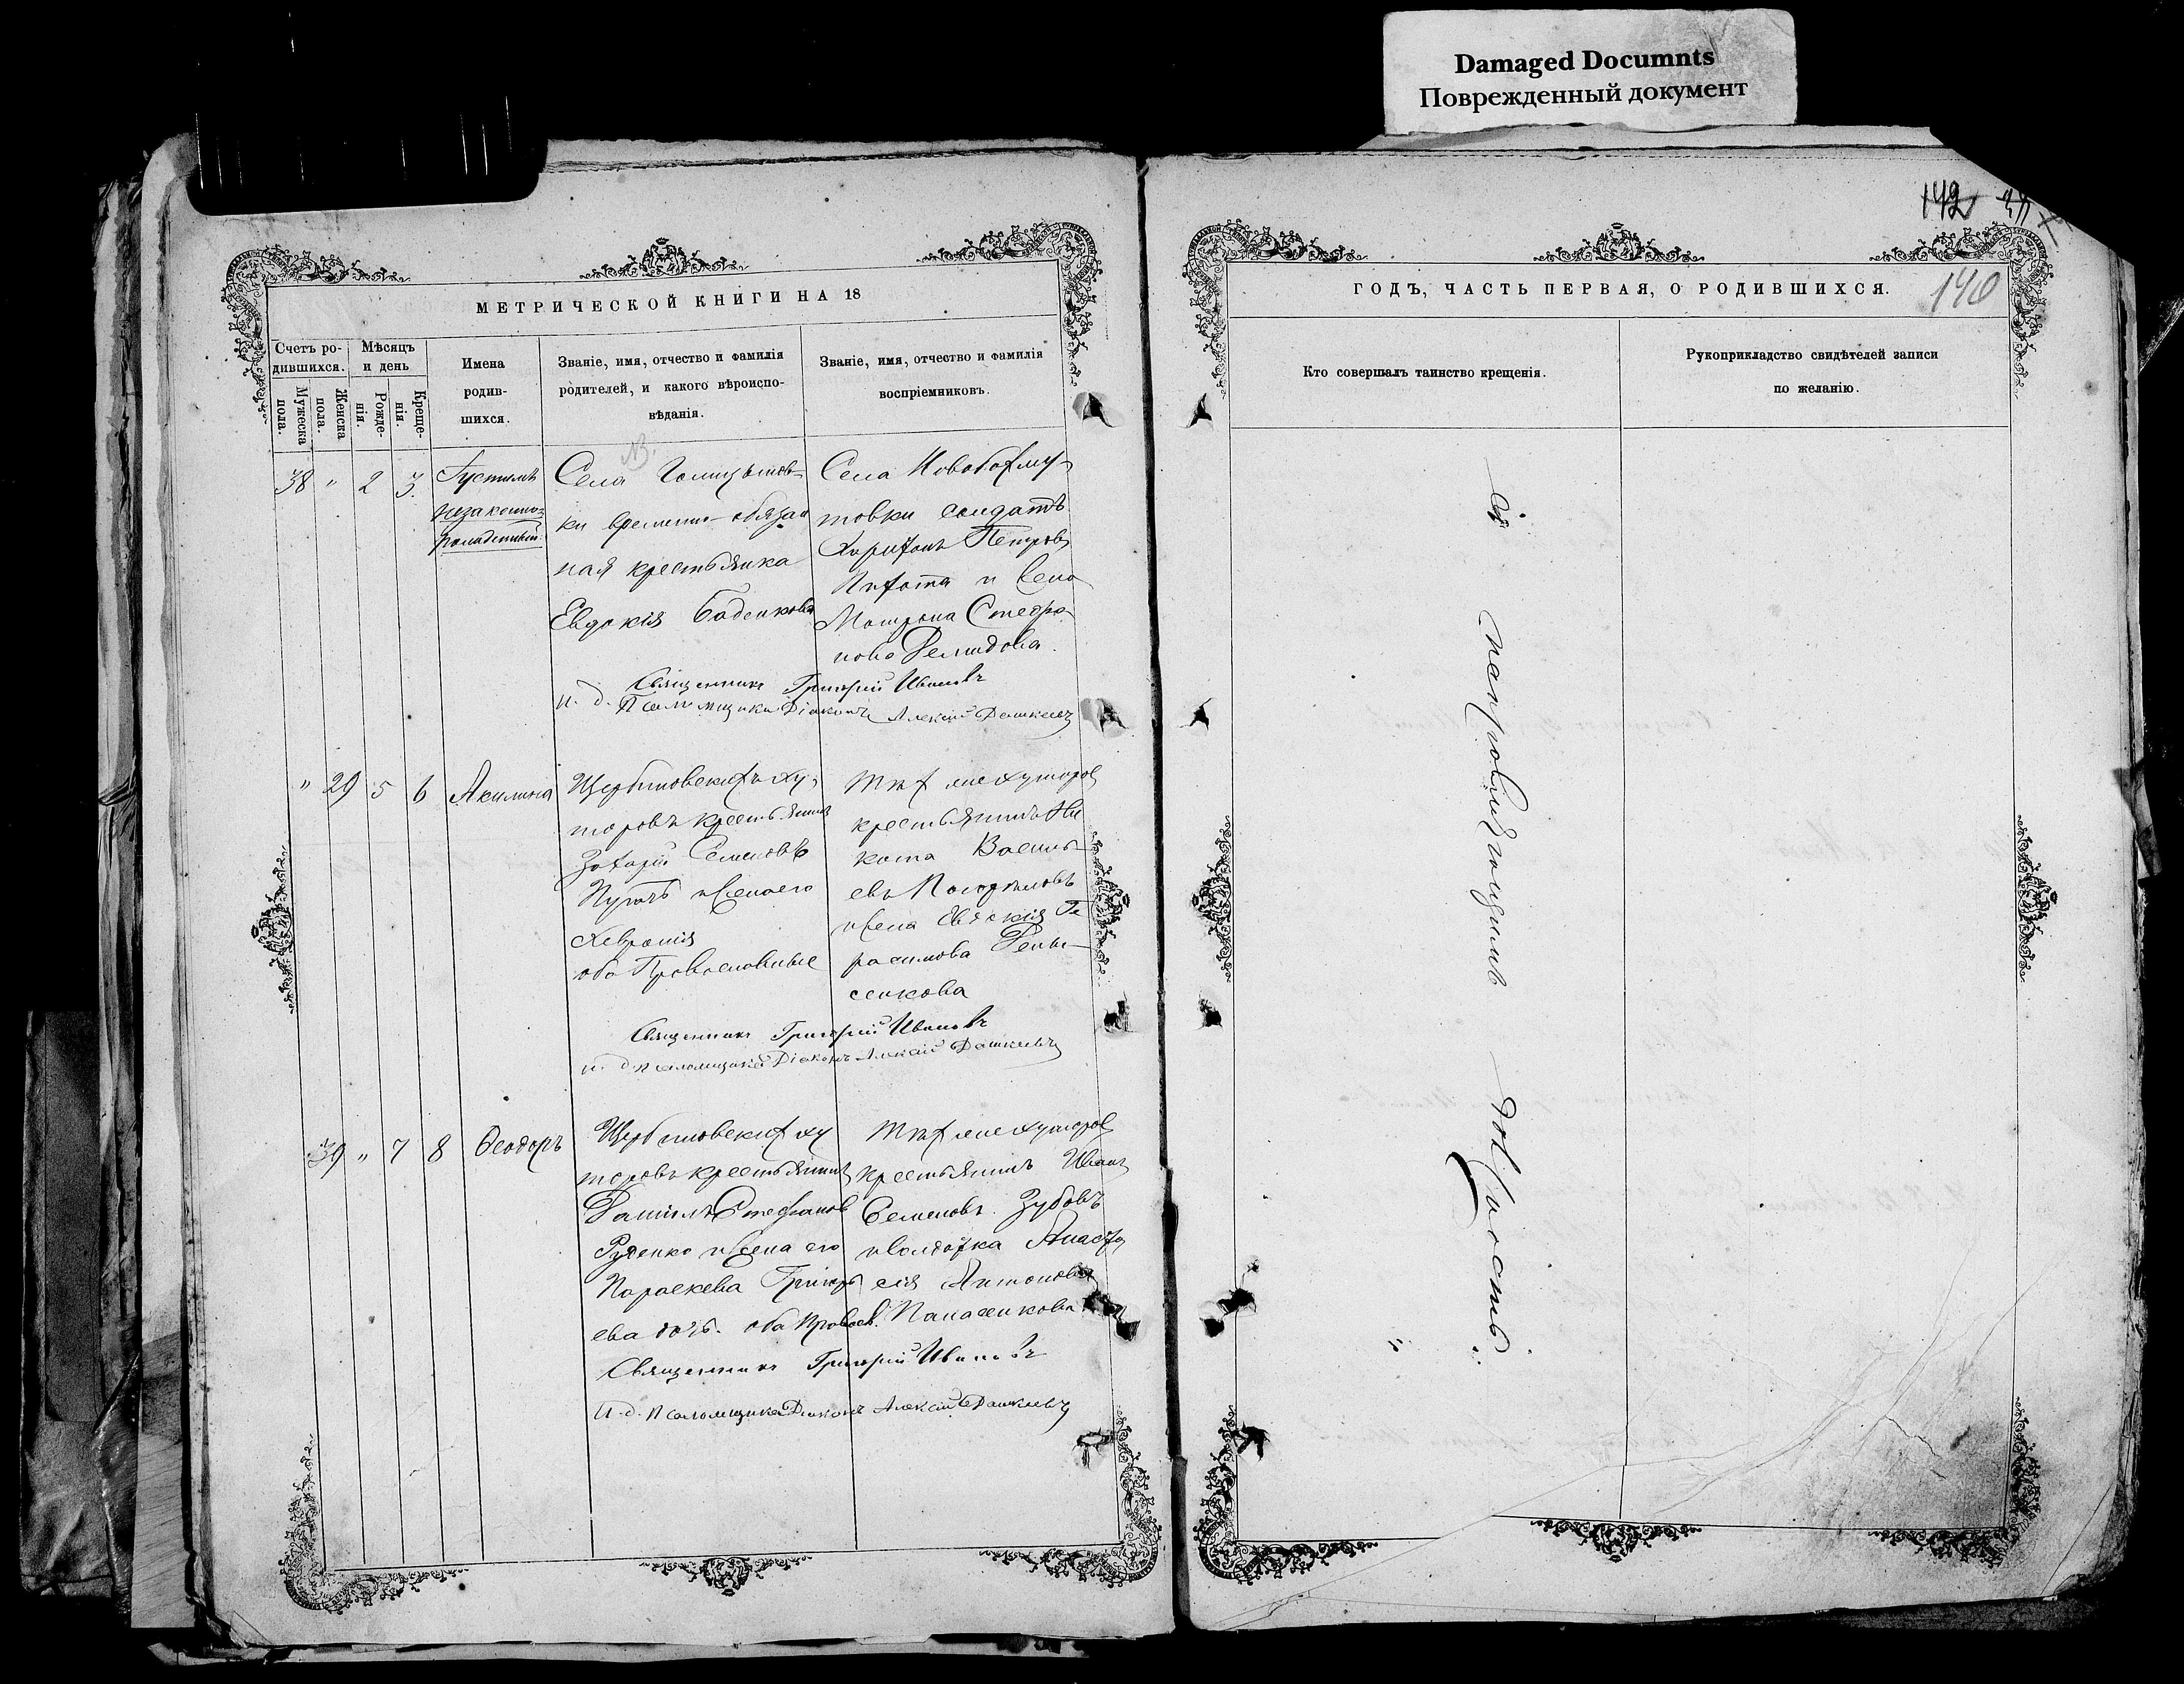 Damaged Documnts
Поврежденный документ
142
МЕТРИЧЕСКОЙ КНИГИ НА 18
Счетъ ро-
дившихся.
Мужеска
пола.
Женска
пола.
Мѣсяцъ
и день
Рожде-
нія.
Креще-
нія.
Имена
родив-
шихся.
Званіе, имя, отчество и фамилія
родителей, и какого вѣроиспо-
вѣданія.
Званіе, имя, отчество и фамилія
воспріемниковъ.
38 " 2 3.
незаконно-
Села
ки временно-обязан
ная крестьянка
Евдокія
Села Новобахму-
товки солдатъ
Харитонъ Петровъ
и
Матрона Стефа-
нова Демидова.
Священникъ Григорій Ивановъ
и. д. Псаломщика Діаконъ Алексій Дашкевъ
" 29 5 6 Акилина
Щербиновскихъ ху-
торовъ крестьянинъ
Захарій Семеновъ
его
Хевронія
оба Православные
тѣхже хуторов
крестьянинъ Ни
кита Василь-
евъ
Ге
расимова
сенкова
Священникъ Григорій Ивановъ
и. д. Псаломщика Діаконъ Алексій Дашкевъ
39 " 7 8 Ѳеодоръ
Щербиновских ху
торовъ крестьянинъ
Даніилъ Стефанов
Руденко и жена его
Параскева Григорь
ева дочь. оба Правосл.
тѣхже хуторов
крестьянинъ Иванъ
Семеновъ Зубовъ
и солдатка Анаста
сія Антонова
Панасенкова
Священникъ Григорій Ивановъ
И. д. Псаломщика Діаконъ Алексій Дашкевъ
ГОДЪ, ЧАСТЬ ПЕРВАЯ, О РОДИВШИХСЯ.
140
Кто совершалъ таинство крещенія.
Рукоприкладство свидѣтелей записи
по желанію.